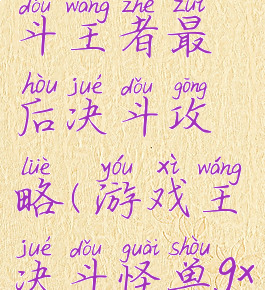 dòu wáng zhě zuì
斗王者最
hòu jué dǒu gōng
后决斗攻
lüè yóu xì wáng
略(游戏王
jué dǒu guài shòu
决斗怪兽9x